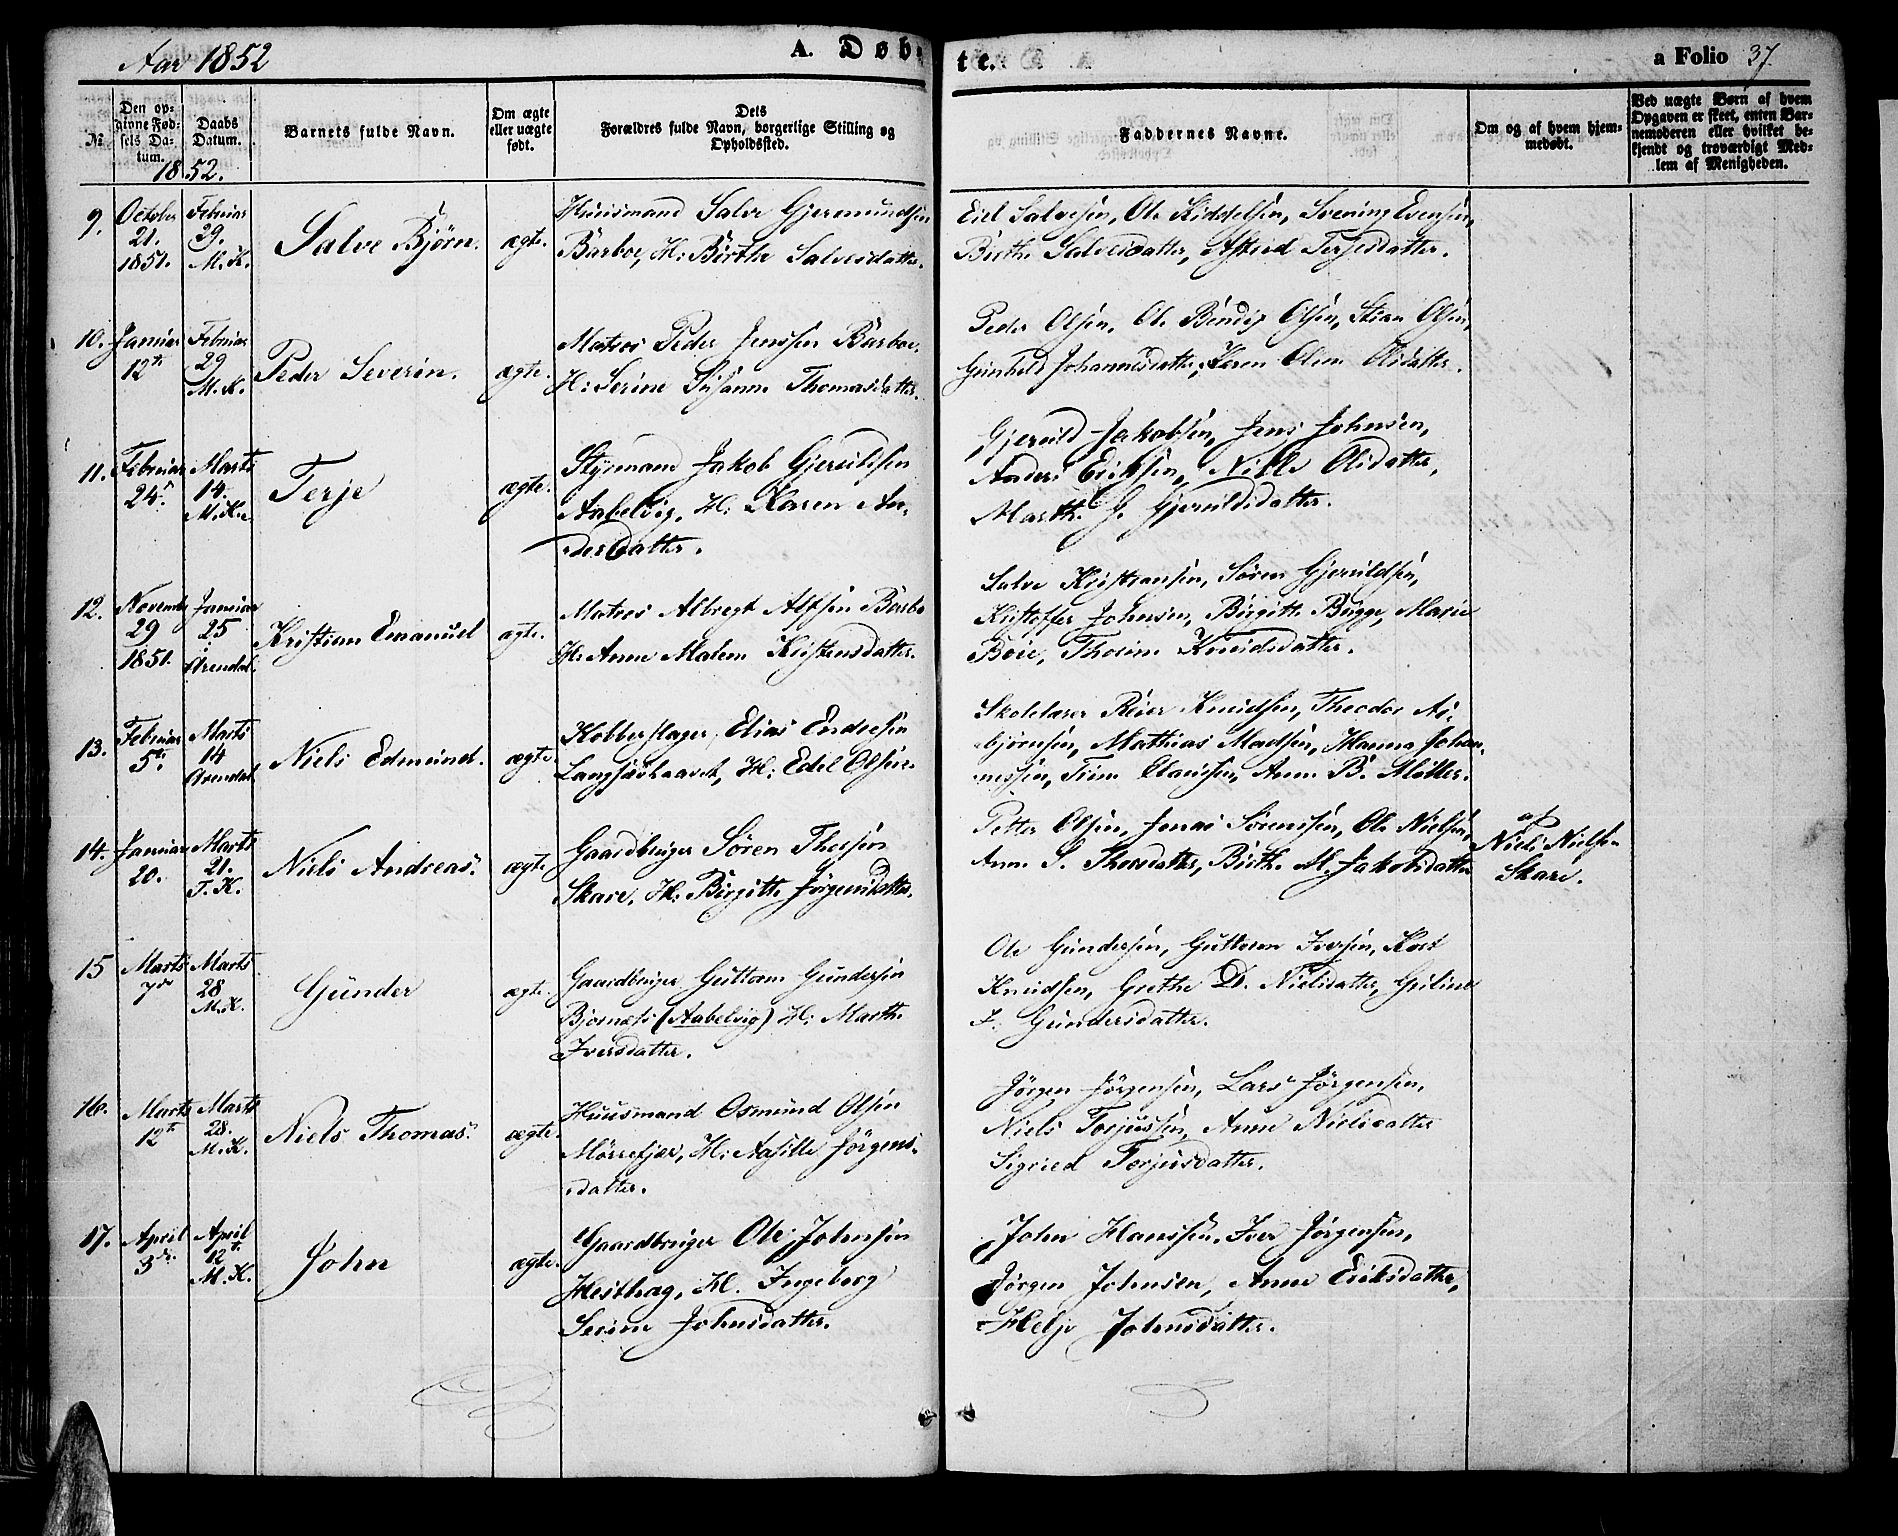 Aar 1852
A. Døb-
te.
a Folio 37.
№
Den op-
givne Fød-
sels Da-
tum.
Daabs
Datum.
1852.
Barnets fulde Navn.
Om ægte
eller uægte
født.
Dets
Forældres fulde Navn, borgerlige Stilling og
Opholdssted.
Faddernes Navne.
Om og af hvem hjem-
medøbt.
Ved uægte Børn af hvem
Opgaven er skeet, enten Bar-
nemoderen eller hvilket be-
kjendt og troværdigt Med-
lem af Menigheden.
9.
October
21.
1851.
Februar
29.
M. K.
Salve Bjørn.
ægte.
Huusmand Salve Gjermundsen
Barboe, H: Birthe Salvesdatter.
Eiel Salvesen, Ole Kiddelsen, Svening Evensen,
Birthe Salvesdatter, Astred Terjesdatter.
10.
Januar
12te
Februar
29
M. K.
Peder Severin.
ægte.
Matros Peder Jenssen Barboe.
H: Serine Susanne Thomasdatter.
Peder Olsen, Ole Bendix Olsen, Stian Olsen,
Gunhild Johannesdatter, Karen Oline Olsdatter.
11.
Februar
24.
Marts
14.
M. K.
Terje
ægte.
Styrmand Jakob Gjeruldsen
Aabelvig, H: Karen An-
dersdatter.
Gjeruld Jakobsen, Jens Johnsen,
Anders Eriksen, Nille Olsdatter,
Marthe J. Gjeruldsdatter.
12.
Novemb
29
1851.
Januar
25
i
Arendal.
Kristian Emanuel
ægte.
Matros Albregt Alfsen Barbo
H: Anne Malene Kristensdatter.
Salve Kristiansen, Søren Gjeruldsen,
Kristoffer Johnsen, Birgithe Bugge, Marie
Boie, Thorine Knudsdatter.
13.
Februar
5te
Marts
14
Arendal.
Niels Edmund.
ægte
Kobberslager, Elias Endresen
Langsævhaavet, H: Edel Olsen.
Skolelærer Reier Knudsen, Theodor As-
bjørnsen, Mathias Madsen, Hanna Johan-
nessen, Trine Clausen, Anne B. Møller.
14.
Januar
20.
Marts
21.
T. K.
Niels Andreas.
ægte
Gaardbruger Søren Thorsen
Skare, H: Birgitte Jørgensdatter.
Petter Olsen, Jonas Sørensen, Ole Nielsen,
Anne S. Thorsdatter, Birthe M. Jakobsdatter
af
Niels Nielsen
Skare.
15
Marts
7de
Marts
28
M. K.
Gunder
ægte.
Gaardbruger Guttorm Gundersen
Bjornæs (Aabelvig) H: Marthe
Iversdatter.
Ole Gundersen, Guttorm Iversen, Koet
Knudsen, Grethe D. Nielsdatter, Griline
I. Gundersdatter.
16.
Marts
12te
Marts
28.
M. K.
Niels Thomas.
ægte.
Huusmand Osmund Olsen
Mørrefjær, H: Aasille Jørgens-
datter.
Jørgen Jørgensen, Lars Jørgensen,
Niels Torjussen, Anne Nielsdatter
Sigried Torjusdatter.
17.
April
3de
April
12te
M. K.
John
ægte.
Gaardbruger Ole Johnsen
Heithag, H. Ingeborg
Serine Johnsdatter.
John Hanssen, Iver Jørgensen,
Jørgen Johnsen, Anne Eriksdatter,
Helje Johnsdatter.